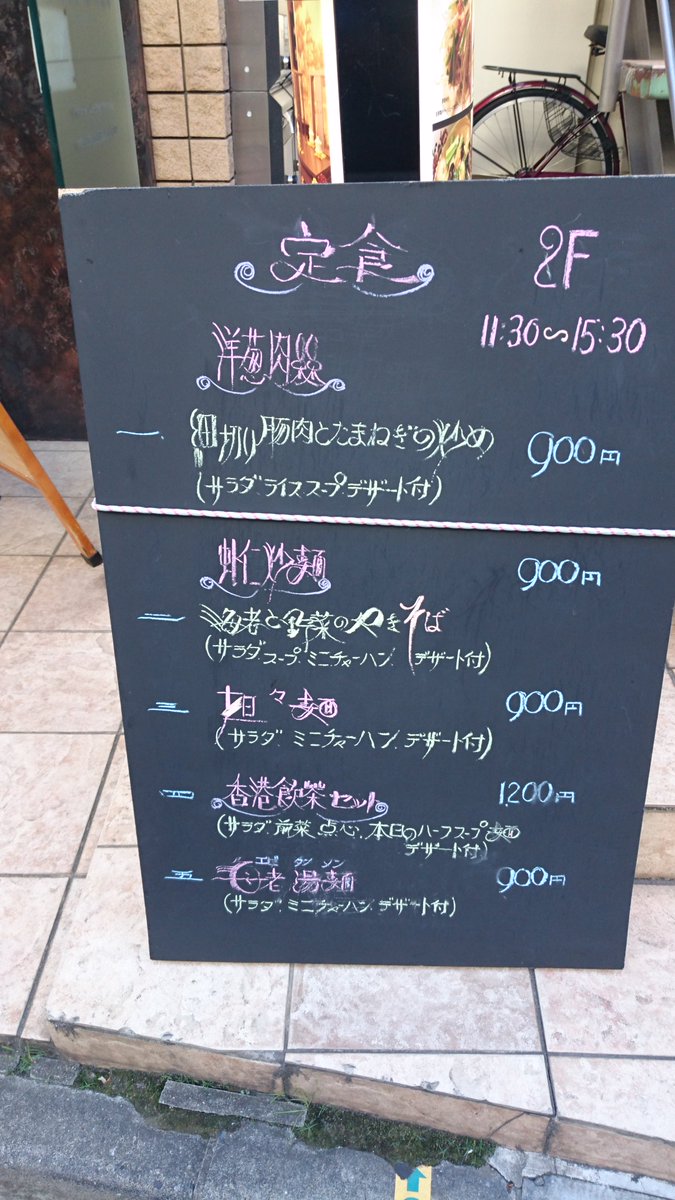 定食 2F
11:30~15:30
洋葱肉絲
一、 細切り豚肉とたまねぎの炒め 900円
(サラダ.ライス.スープ.デザート付)
虾仁炒麺 900円
二、 海老と野菜のやきそば
(サラダ.スープ.ミニチャーハン.デザート付)
三、 担々麺 900円
(サラダ.ミニチャーハン.デザート付)
四、 香港飲茶セット 1,200円
(サラダ.前菜.点心.本日のハーフスープ麺
デザート付)
エビ タン メン
五、 海老湯麺 900円
(サラダ.ミニチャーハン.デザート付)